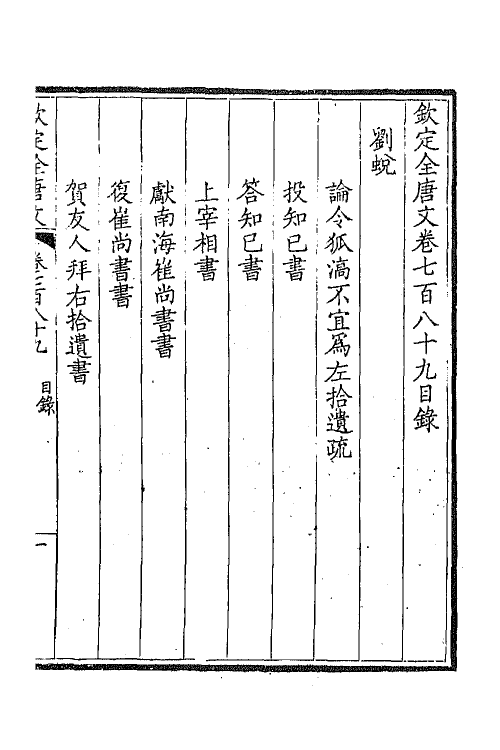 欽定全唐文卷七百八十九目錄
劉蛻
論令狐滈不宜爲左拾遺疏
投知己書
答知己書
上宰相書
獻南海崔尚書書
復崔尚書書
賀友人拜右拾遺書
欽定全唐文 卷七百八十九 目錄 一